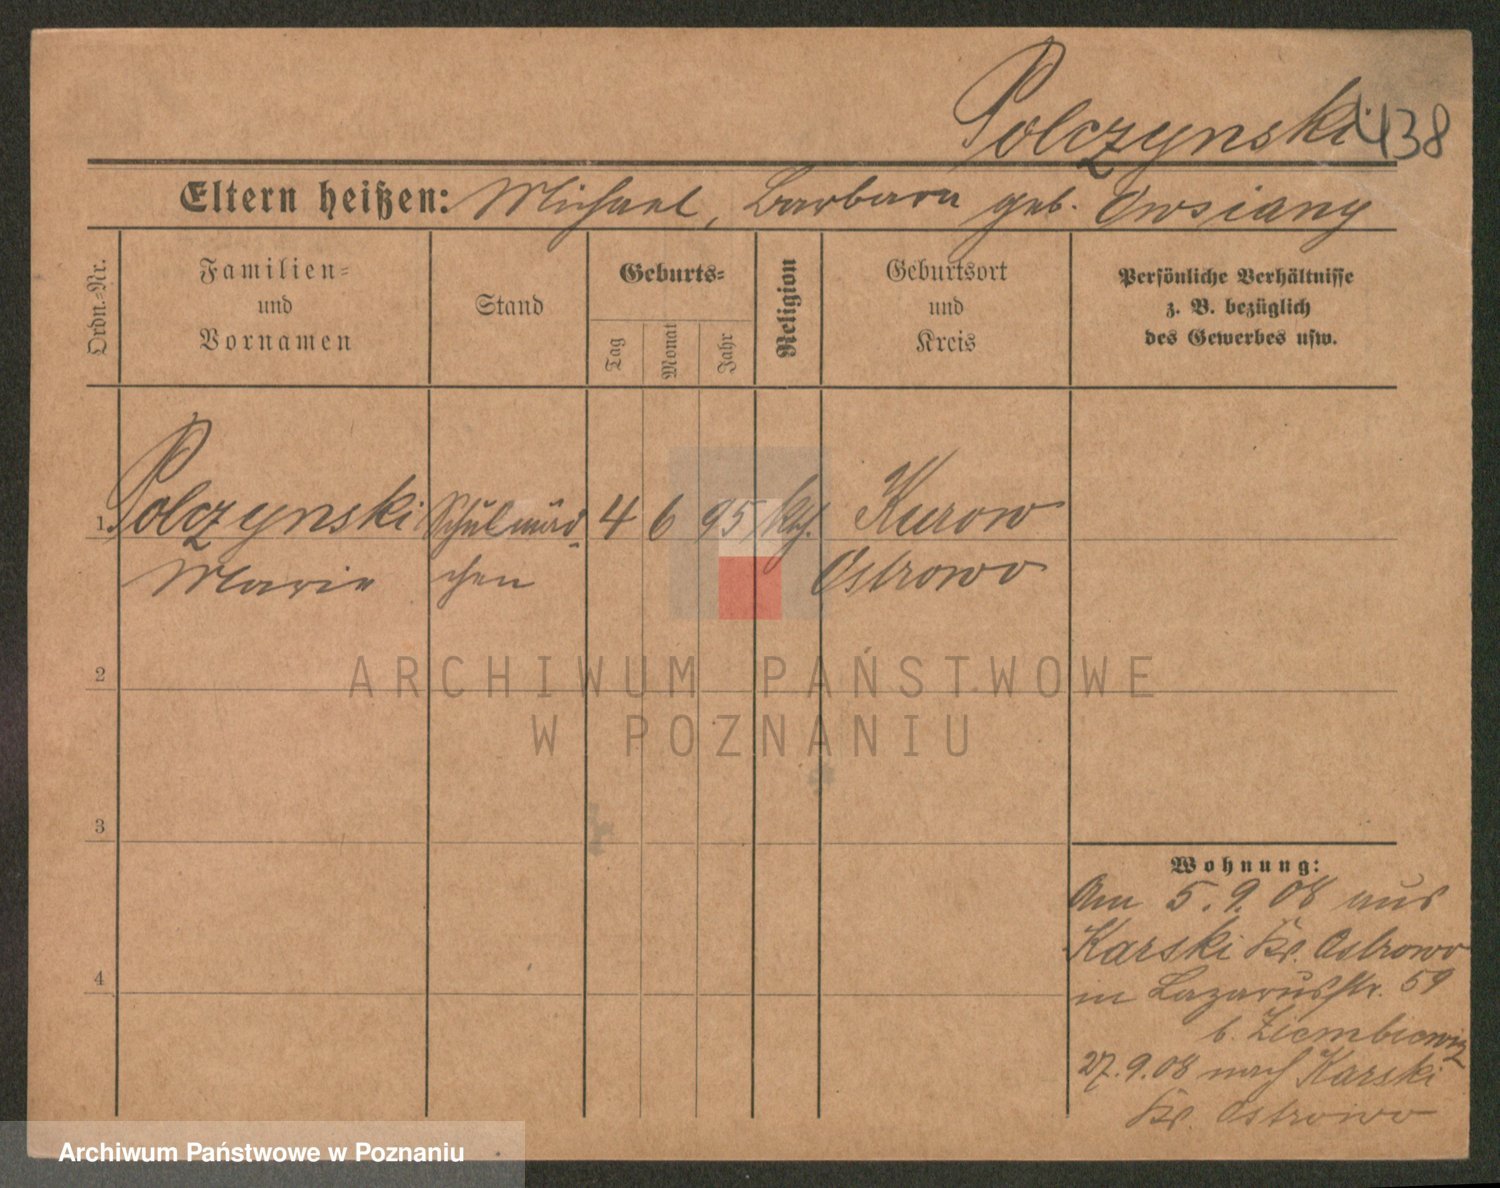 Polczynski 438
Eltern heißen: Michael, Barbara geb. Owsiany
Ordn.-Nr.
Familien-
und
Vornamen
Stand
Geburts-
Tag
Monat
Jahr
Religion
Geburtsort
und
Kreis
Persönliche Verhältnisse
z. B. bezüglich
des Gewerbes usw.
1. Polczynski Schulmäd- 4 6 95 kth. Kurow
Marie chen Ostrowo
2
3
4
Wohnung:
Am 5.9.08 aus
Karski Kr. Ostrowo
in Lazarusstr. 59
b. Ziembiewicz
27.9.08 nach Karski
Kr. Ostrowo
ARCHIWUM PAŃSTWOWE
W POZNANIU
Archiwum Państwowe w Poznaniu